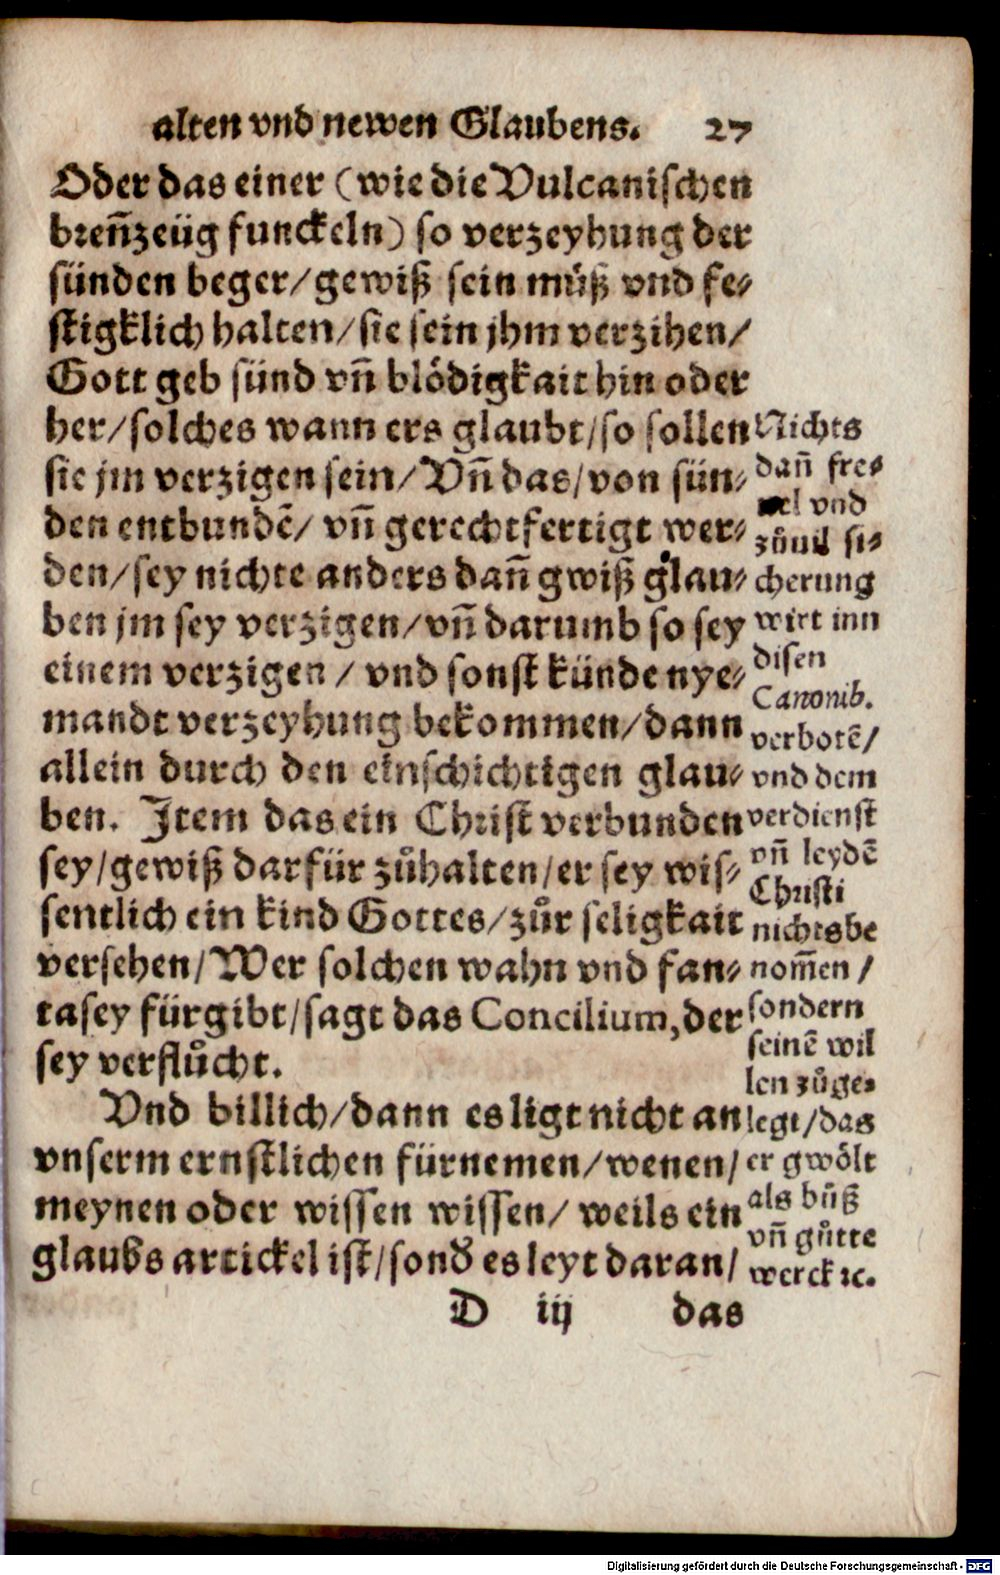 alten vnd newen Glaubens. 27
Oder das einer (wie die Vulcanischen
breñzeüg funckeln) so verzeyhung der
sünden beger/gewiß sein můß vnd fe-
stigklich halten/sie sein jhm verzihen/
Gott geb sünd vñ blödigkait hin oder
her/solches wann ers glaubt/so sollen
sie jm verzigen sein/Vñ das/von sün-
den entbundẽ/vñ gerechtfertigt wer-
den/sey nichts anders dañ gwiß glau-
ben jm sey verzigen/vñ darumb so sey
einem verzigen/vnd sonst künde nye-
mandt verzeyhung bekommen/dann
allein durch den einschichtigen glau-
ben. Item das ein Christ verbunden
sey/gewiß darfür zůhalten/er sey wis-
sentlich ein kind Gottes/zůr seligkait
versehen/Wer solchen wahn vnd fan-
tasey fürgibt/sagt das Concilium, der
sey verflůcht.
Vnd billich/dann es ligt nicht an
vnserm ernstlichen fürnemen/wenen/
meynen oder wissen wissen/weils ein
glaubs artickel ist/sond' es leyt daran/
D iij das
Nichts
dañ fre-
uel vnd
zůuil si-
cherung
wirt inn
disen
Canonib.
verbotẽ/
vnd dem
verdienst
vñ leydẽ
Christi
nichts be
nom̃en/
sondern
seinẽ wil
len zůge-
legt/das
er gwölt
als bůß
vñ gůtte
werck ꝛc.
Digitalisierung gefördert durch die Deutsche Forschungsgemeinschaft - DFG